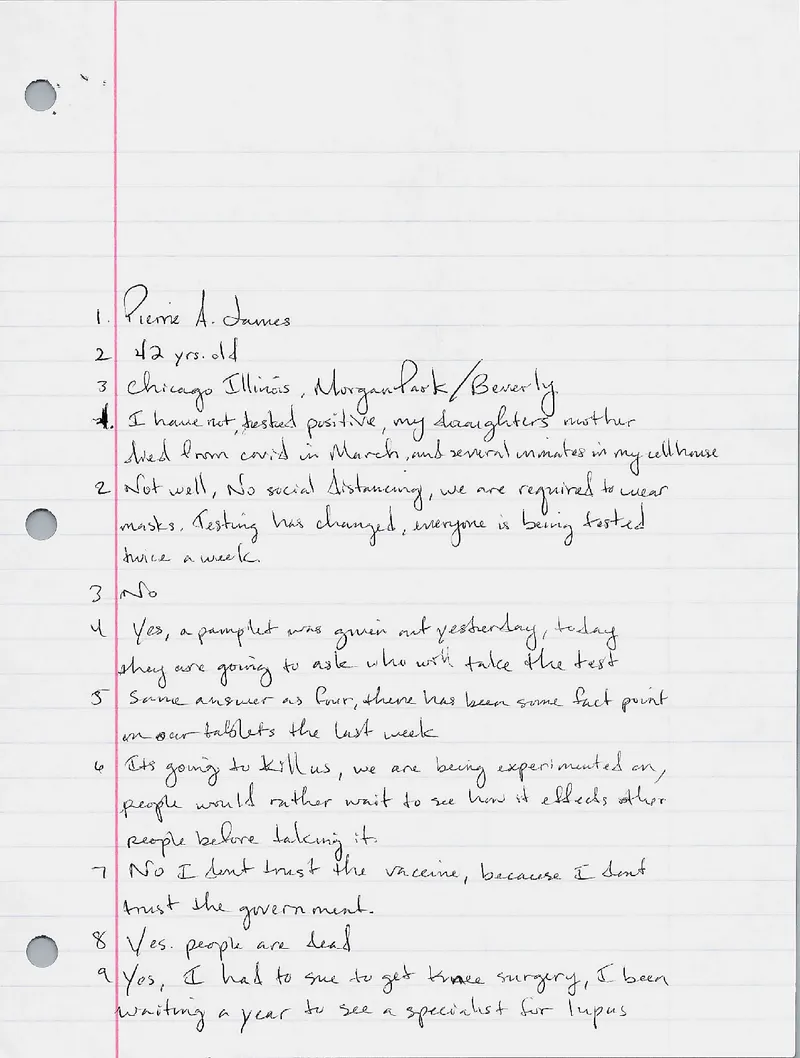 1. Pierre A. James
2 42 yrs. old
3 Chicago Illinois, Morgan Park/Beverly
1. I have not, tested positive, my daughters mother
died from covid in March, and several inmates in my cellhouse
2 Not well, No social distancing, we are required to wear
masks. Testing has changed, everyone is being tested
twice a week.
3 No
4 Yes, a pamplet was given out yesterday, today
they are going to ask who will take the test
5 Same answer as four, there has been some fact point
on our tablets the last week
6 Its going to kill us, we are being experimented on,
people would rather wait to see how it effects other
people before taking it.
7 No I dont trust the vaccine, because I dont
trust the government.
8 Yes. people are dead
9 Yes, I had to sue to get knee surgery, I been
waiting a year to see a specialist for lupus